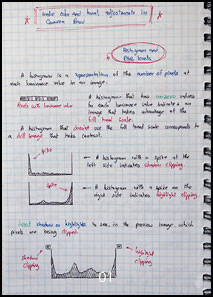 Make color and tonal adjustments in
Camera Raw
Histogram and
Pixel levels
A histogram is a representation of the number of pixels at
each luminance value in an image.
Pixels with luminance value
A histogram that has nonzero values
for each luminance value indicate a an
image that takes advantage of the
full tonal scale.
A histogram that doesn't use the full tonal scale corresponds to
a dull image that lacks contrast.
spike
← A histogram with a spike at the
left side indicates shadow clipping.
spike
← A histogram with a spike on the
right side indicates highlight clipping
shadows or highlights to see, in the preview image which
pixels are being clipped.
shadow
clipping
highlight
clipping
01